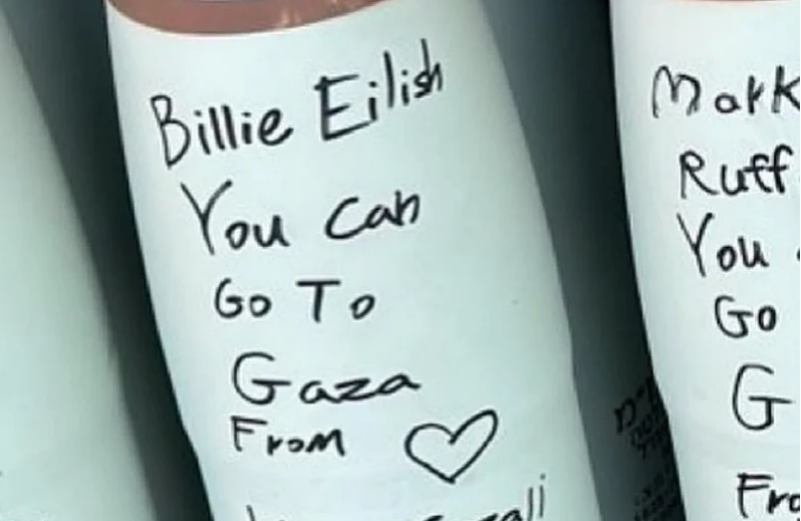 Billie Eilish
You Can
Go To
Gaza
From ♡
Mark
Ruff
You
Go
G
Fro